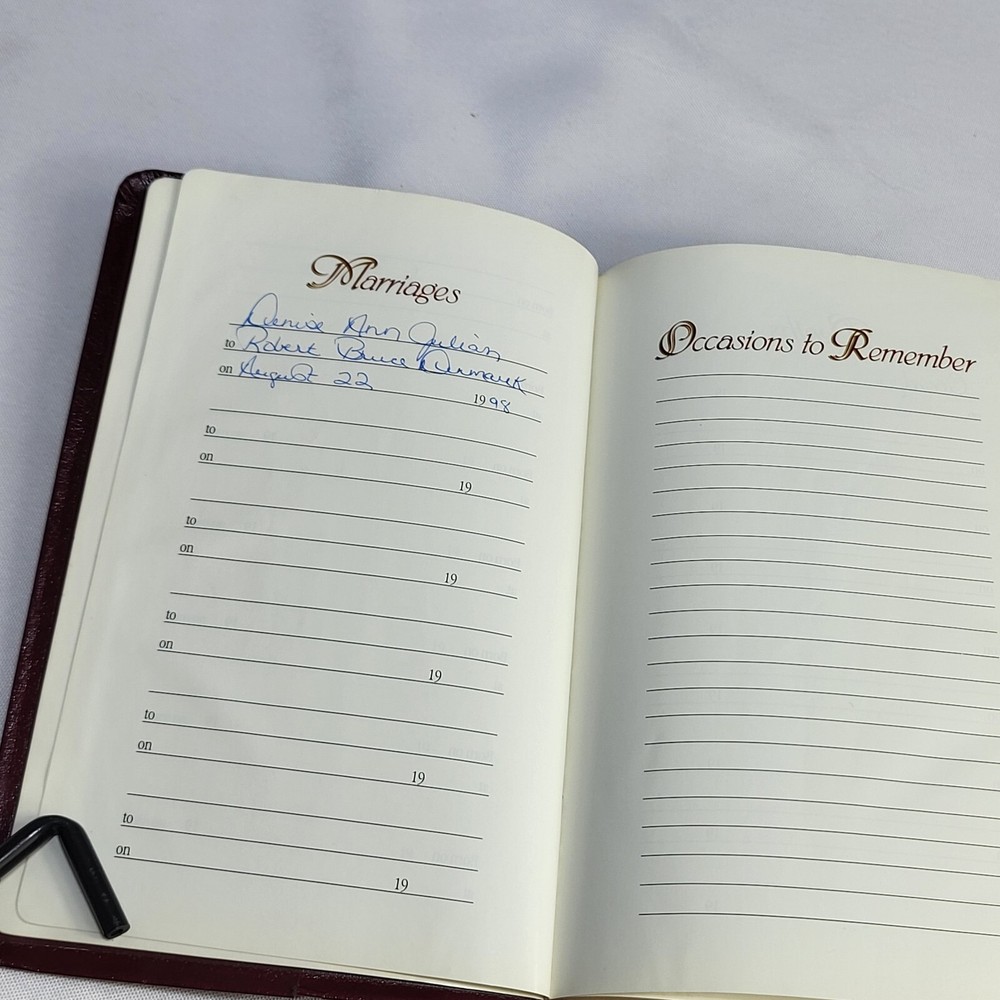 Marriages
Denise Ann Julian
to Robert Bruce Denmark
on August 22
1998
to
on
19
to
on
19
to
on
19
to
on
19
to
on
19
Occasions to Remember